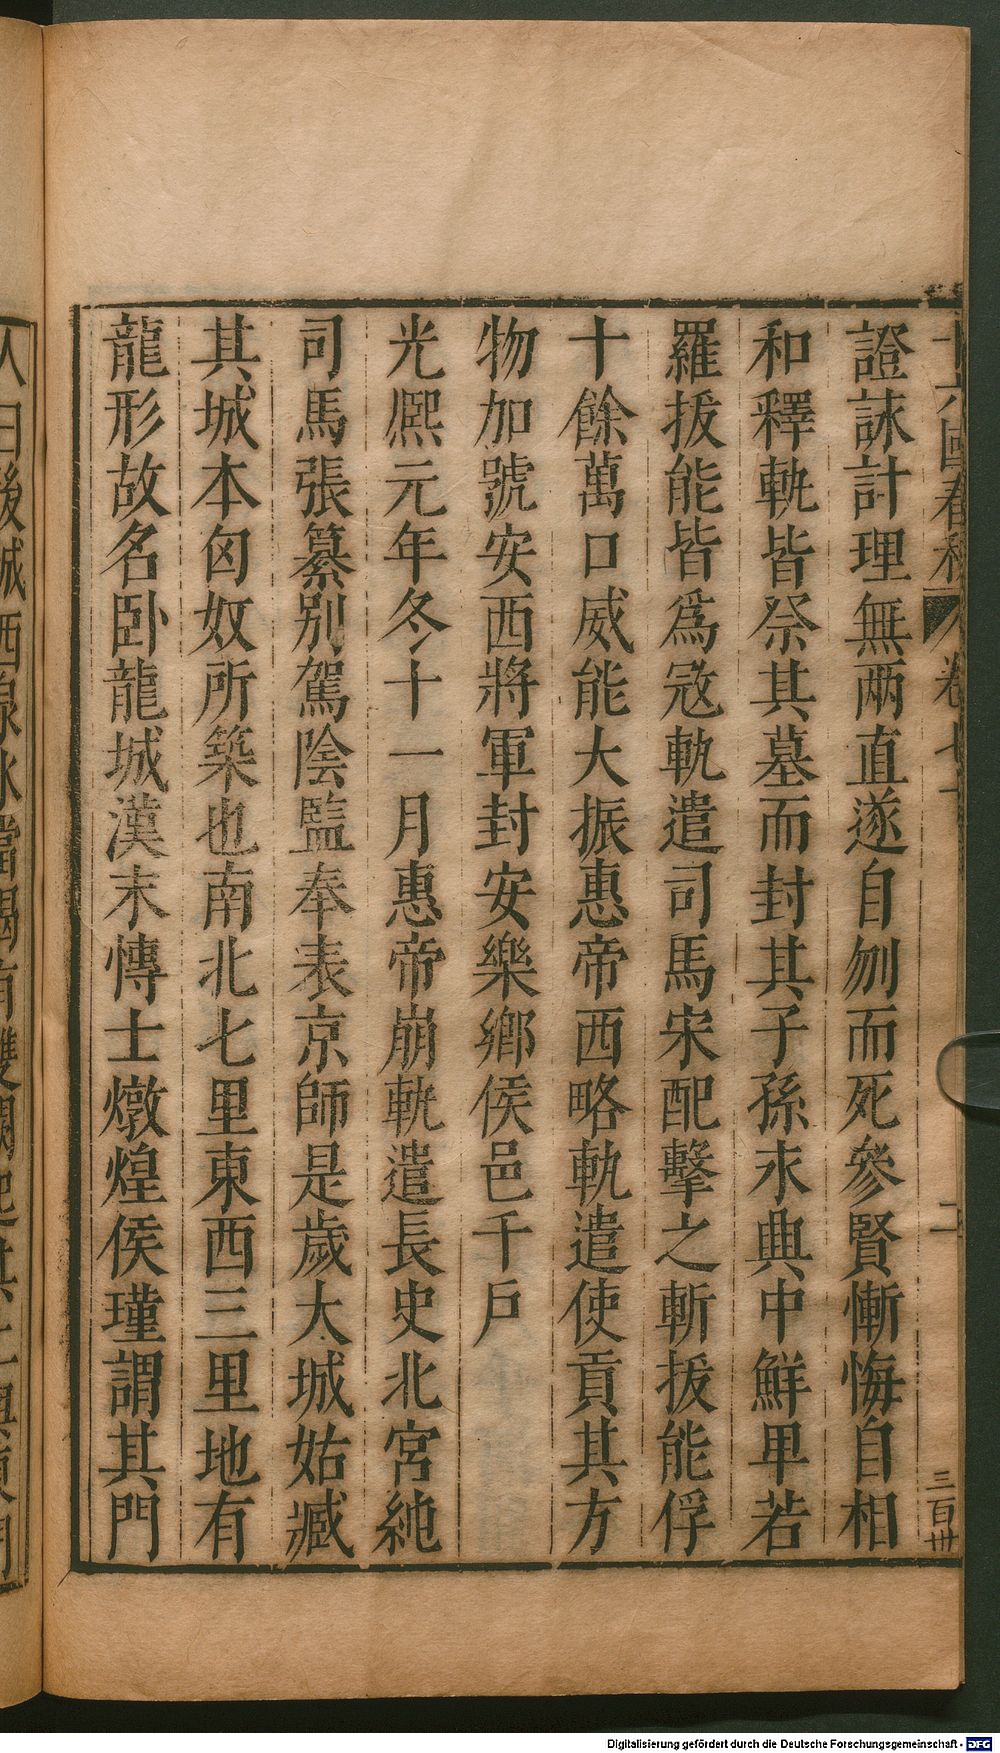 十六國春秋 卷七十 二 三百卅
證誺計理無兩直遂自刎而死參賢慚悔自相
和釋軌皆祭其墓而封其子孫永典中鮮卑若
羅拔能皆爲冦軌遣司馬宋配擊之斬拔能俘
十餘萬口威能大振惠帝西略軌遣使貢其方
物加號安西將軍封安樂鄉侯邑千戶
光熙元年冬十一月惠帝崩軌遣長史北宮純
司馬張纂別駕陰監奉表京師是歲大城姑臧
其城本匈奴所築也南北七里東西三里地有
龍形故名卧龍城漢末慱士燉煌侯瑾謂其門
人曰後城西泉水當竭有雙闕起其上與東門
Digitalisierung gefördert durch die Deutsche Forschungsgemeinschaft - DFG